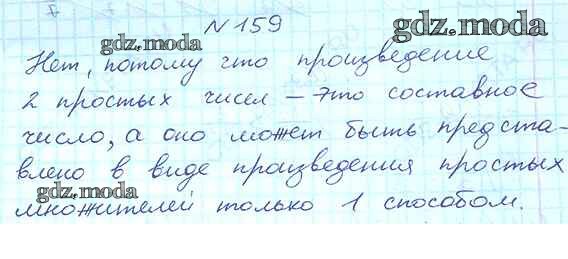 N 159
gdz.moda
gdz.moda
Нет, потому что произведение
2 простых чисел – это составное
число, а оно может быть предста-
влено в виде произведения простых
gdz.moda
gdz.moda
множителей только 1 способом.